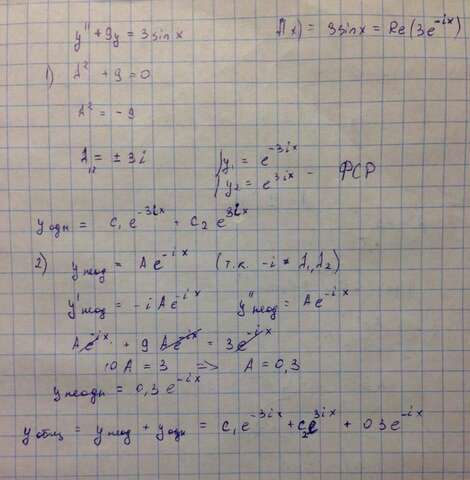 y'' + 9y = 3 sin x    f(x) = 3 sin x = Re(3e^{-ix})
1) λ² + 9 = 0
λ² = -9
λ₁,₂ = ± 3i    y₁ = e^{-3ix}
y₂ = e^{3ix} - ФСР
y одн = c₁e^{-3ix} + c₂e^{3ix}
2) y неод = Ae^{-ix} (т.к. -i ≠ λ₁, λ₂)
y' неод = -iAe^{-ix}    y'' неод = Ae^{-ix}
Ae^{-ix} + 9Ae^{-ix} = 3e^{-ix}
10A = 3 => A = 0,3
y неодн = 0,3e^{-ix}
y общ = y неод + y одн = c₁e^{-3ix} + c₂e^{3ix} + 0 3e^{-ix}